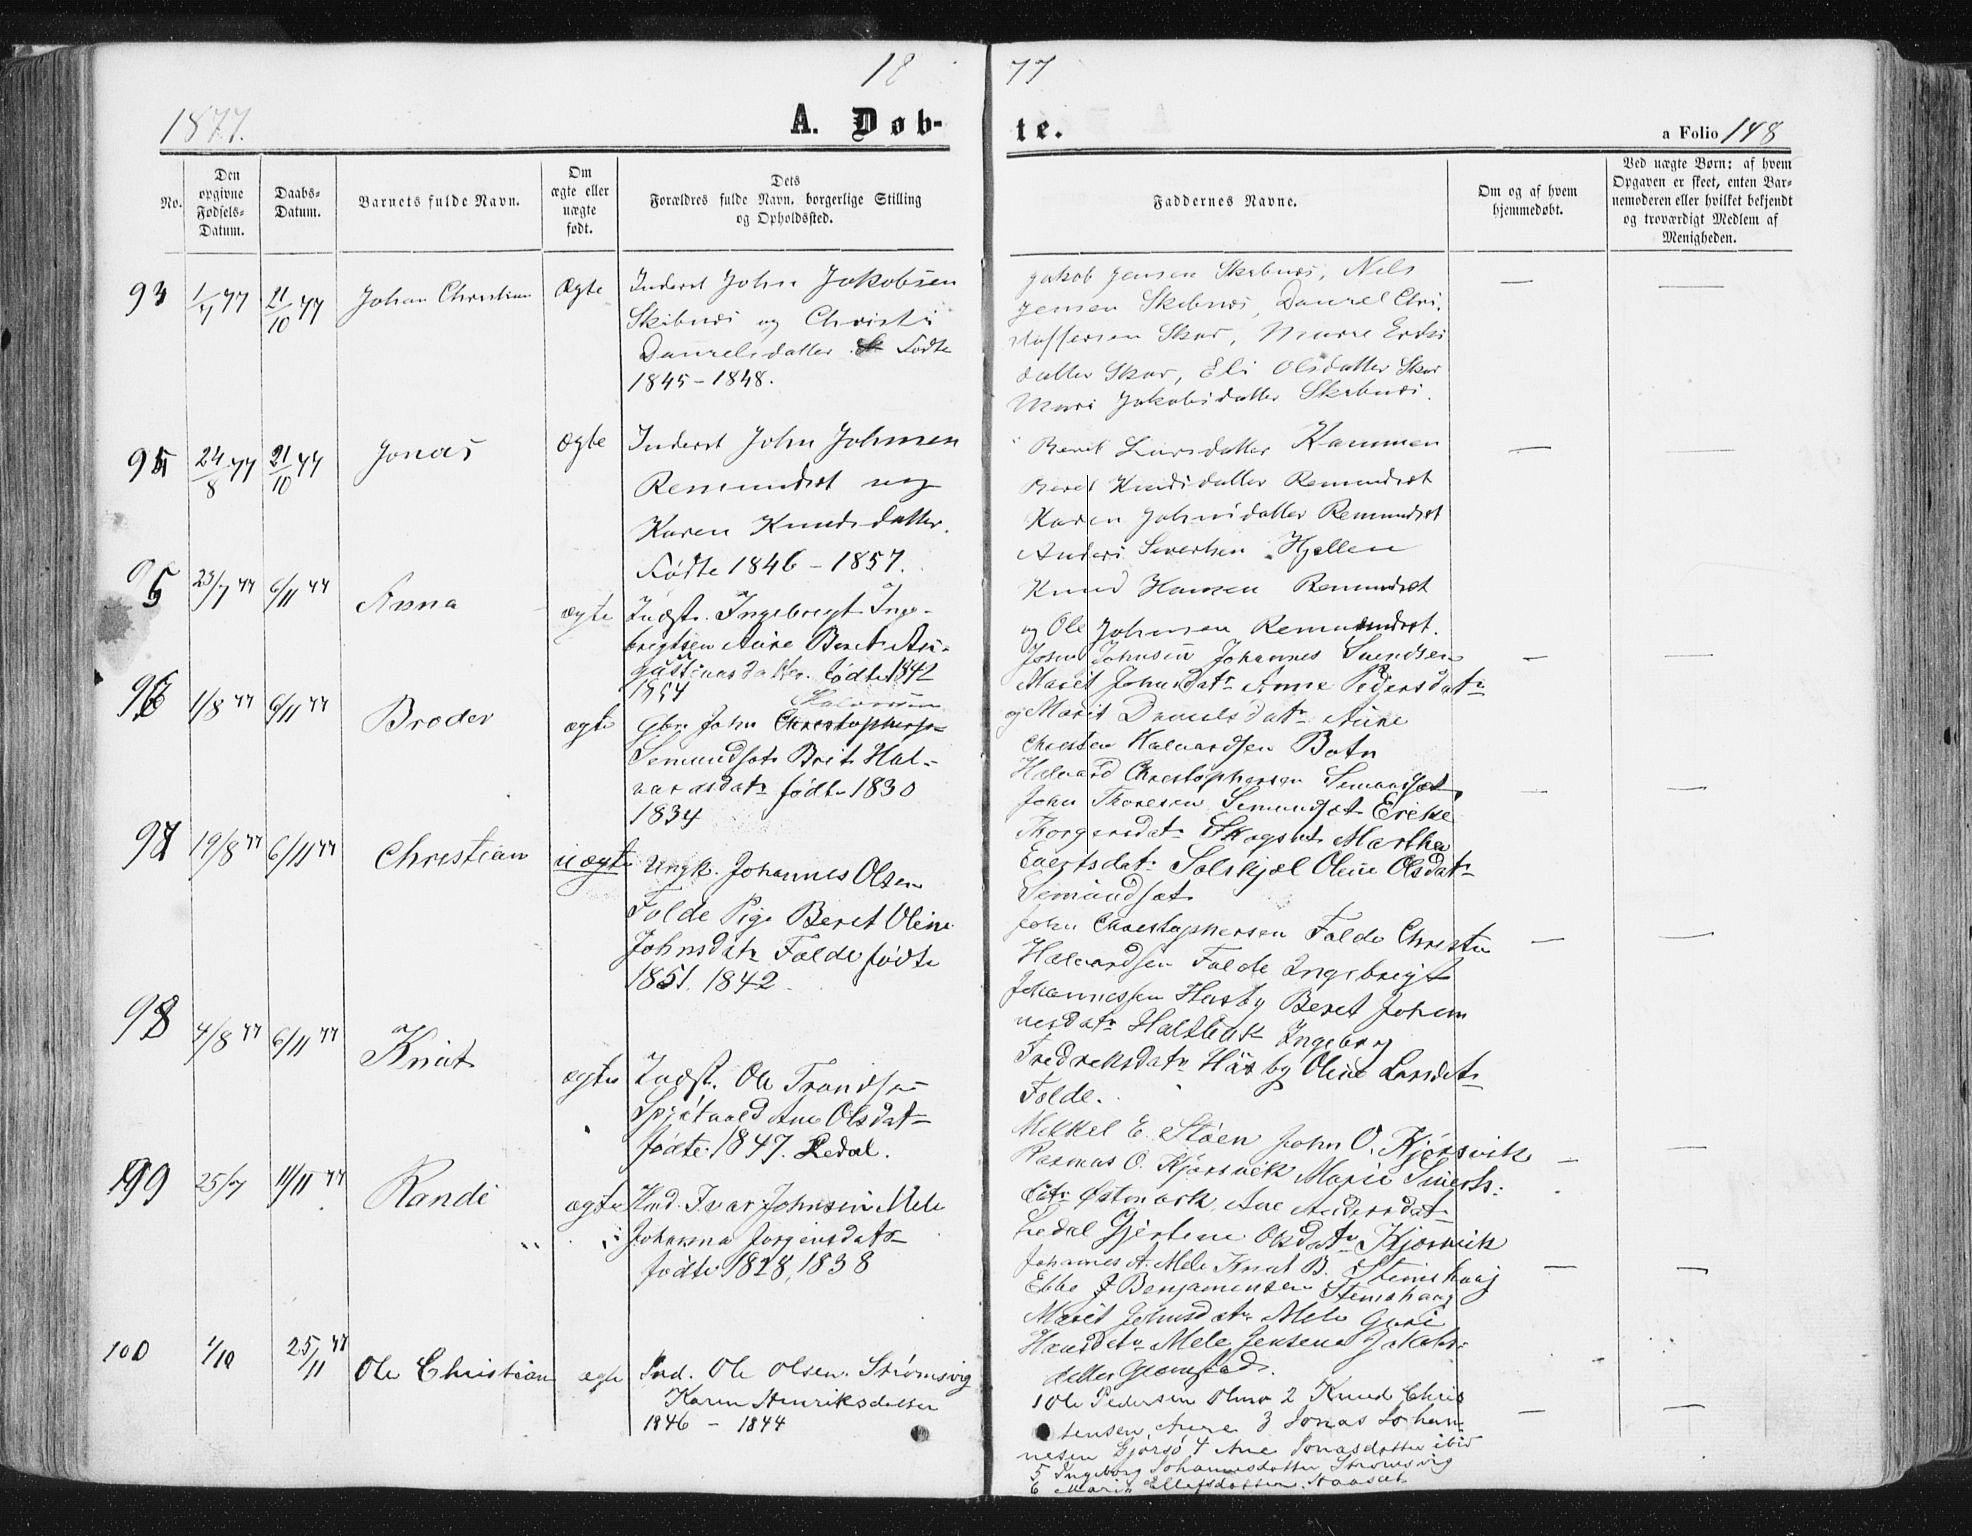 18 77
1877.
A. Døb-
te.
a Folio 148
No.
Den opgivne Fødsels-Datum.
Daabs-Datum.
Barnets fulde Navn.
Om ægte eller uægte født.
Dets Forældres fulde Navn, borgerlige Stilling og Opholdssted.
Faddernes Navne.
Om og af hvem hjemmedøbt.
Ved uægte Børn: af hvem Opgaven er skeet, enten Barnemoderen eller hvilket bekjendt og troværdigt Medlem af Menigheden.
93 77 21/10 77 Johan Christian Ægte
Inderst John Jakobsen
Skibnæs og Christi
Danielsdatter Fødte
1845 - 1848.
Jakob Jensen Skibnæs, Nils
Jensen Skibnæs, Daniel Chri-
stoffersen Skar,
datter Skar, Eli Olsdatter Skar
Jakobsdatter Skibnæs.
24/8 77 21/10 77 Jonas ægte
Inderst John Johnsen
Remmndset og
Karen Knudsdatter.
Fødte 1846 - 1857.
Beret Larsdatter Kammen
Beret Knudsdatter Remmndset
Karen Johnsdatter Remmndset
Anders Sivertsen Hjellen
Knud Hansen Remmndset
og Ole Johnsen Remmndset.
23/7 77 6/11 77 Anna ægte
Indst. Ingebrigt Inge-
brigtsen Aure Beret Au-
gustinusdatter. fødte 1842
1854
Johnsen Johannes Svendsen
Marit Johnsdatr Anne Pedersdatr
og Marit Danielsdatr Aure
1/8 77 6/11 77 Broder ægte
Halvorsen
Gbr. John Christophersen
Semundset Brit Hal-
vardsdatr fødte 1830
1834
Christen Halvardsen Botn
Halvard Christophersen Semundset
John Thoresen Semundset Erike
Thorgersdatr Skogset Martha
Evertsdatr Solskjel Oline Olsdatr
Semundset
97 19/8 77 6/11 77 Christian uægte
Ungk. Johannes Olsen
Folde Pige Beret Oline
Johnsdatr Folde fødte
1851. 1842
John Christophersen Folde Christen
Halvardsen Folde Ingebrigt
Johannessen Husby Beret Johan
nesdatr Holtbak Ingeborg
Fredreksdatr Husby Oline Larsdatr
Folde.
98 4/8 77 6/11 77 Knut ægte
Indst. Ole Trondsen
Ane Olsdatr
fødte 1847. Ledal.
Mikkel E. Støen John O. Kjørsvik
Rasmus O. Kjørsvik Marie Siverts-
datr Østmark, Ane Andersdatr
Ledal Gjertine Olsdatr Kjørsvik
99 25/7 11/11 77 Randi ægte
Ind. Ivar Johnsen Mele
Johanna Jørgensdatr
fødte 1828, 1838
Johannes A. Mele Knut B. Stemshaug
Ebbe J Benjaminsen Stemshaug
Marit Johnsdatr Mele Guri
Hansdatr Mele Jensena Jakobs-
datter
100 4/10 25/11 77 Ole Christian ægte
Ind. Ole Olsen Strømsvig
Karen Henriksdatter
1846 - 1844
1 Ole Pedersen 2 Knud Chris
tensen, Aure 3 Jonas Johan-
nesen Gjørsø 4 Ane Jonasdatter ibid
5 Ingeborg Johannesdatter Strømsvig
6 Maria Ellefsdatter,